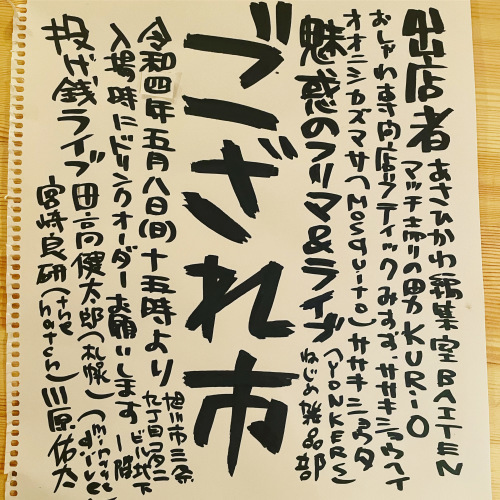 出店者 あさひかわ編集室BAITEN
マッチ売りの男 KURiO
おしゃれ専門店ブティックみすず、ササキショウヘイ
オオニシカズマサ(Mosquito)ササキショウタ
(YONKERS)
魅惑のフリマ&ライブ ねじめ雑品部
ござれ市
令和四年五月八日(日)十五時より
旭川市三条
ビル地下
入場時にドリンクオーダーお願いします
投げ銭ライブ 田高健太郎(札幌)
宮崎良研(the hatch)川原佑太